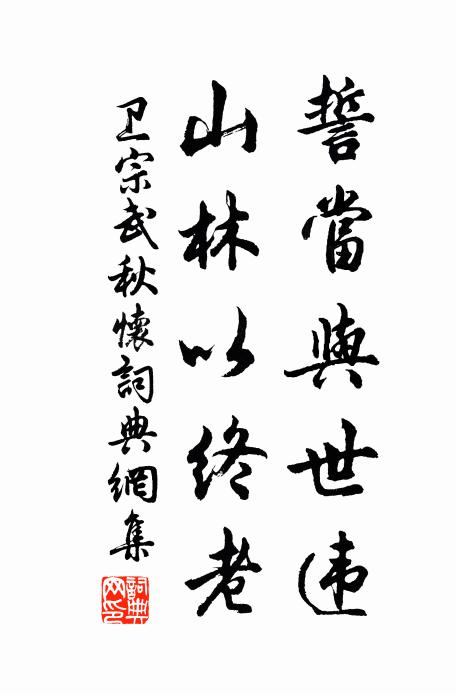 誓當與世违
山林以终老
卫宗武秋懷詞典網集
詞典网印